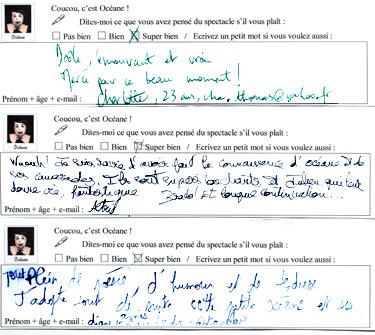 Coucou, c'est Océane !
Dites-moi ce que vous avez pensé du spectacle s'il vous plaît :
Pas bien Bien Super bien / Ecrivez un petit mot si vous voulez aussi :
Océane
Drôle, émouvant et vrai
Merci pour ce beau moment !
Prénom + âge + e-mail : Charlotte, 23 ans,
Coucou, c'est Océane !
Dites-moi ce que vous avez pensé du spectacle s'il vous plaît :
Pas bien Bien Super bien / Ecrivez un petit mot si vous voulez aussi :
Océane
Wuaouh! d'avoir fait la connaissance d'océane et de
ses camarades. Ils sont et
donne vie, fantastique Et longue continuation...
Prénom + âge + e-mail :
Coucou, c'est Océane !
Dites-moi ce que vous avez pensé du spectacle s'il vous plaît :
Pas bien Bien Super bien / Ecrivez un petit mot si vous voulez aussi :
Océane
Plein de poésie, d'humour et de
J'adopte tout de suite cette petite Océane et ses
Prénom + âge + e-mail :